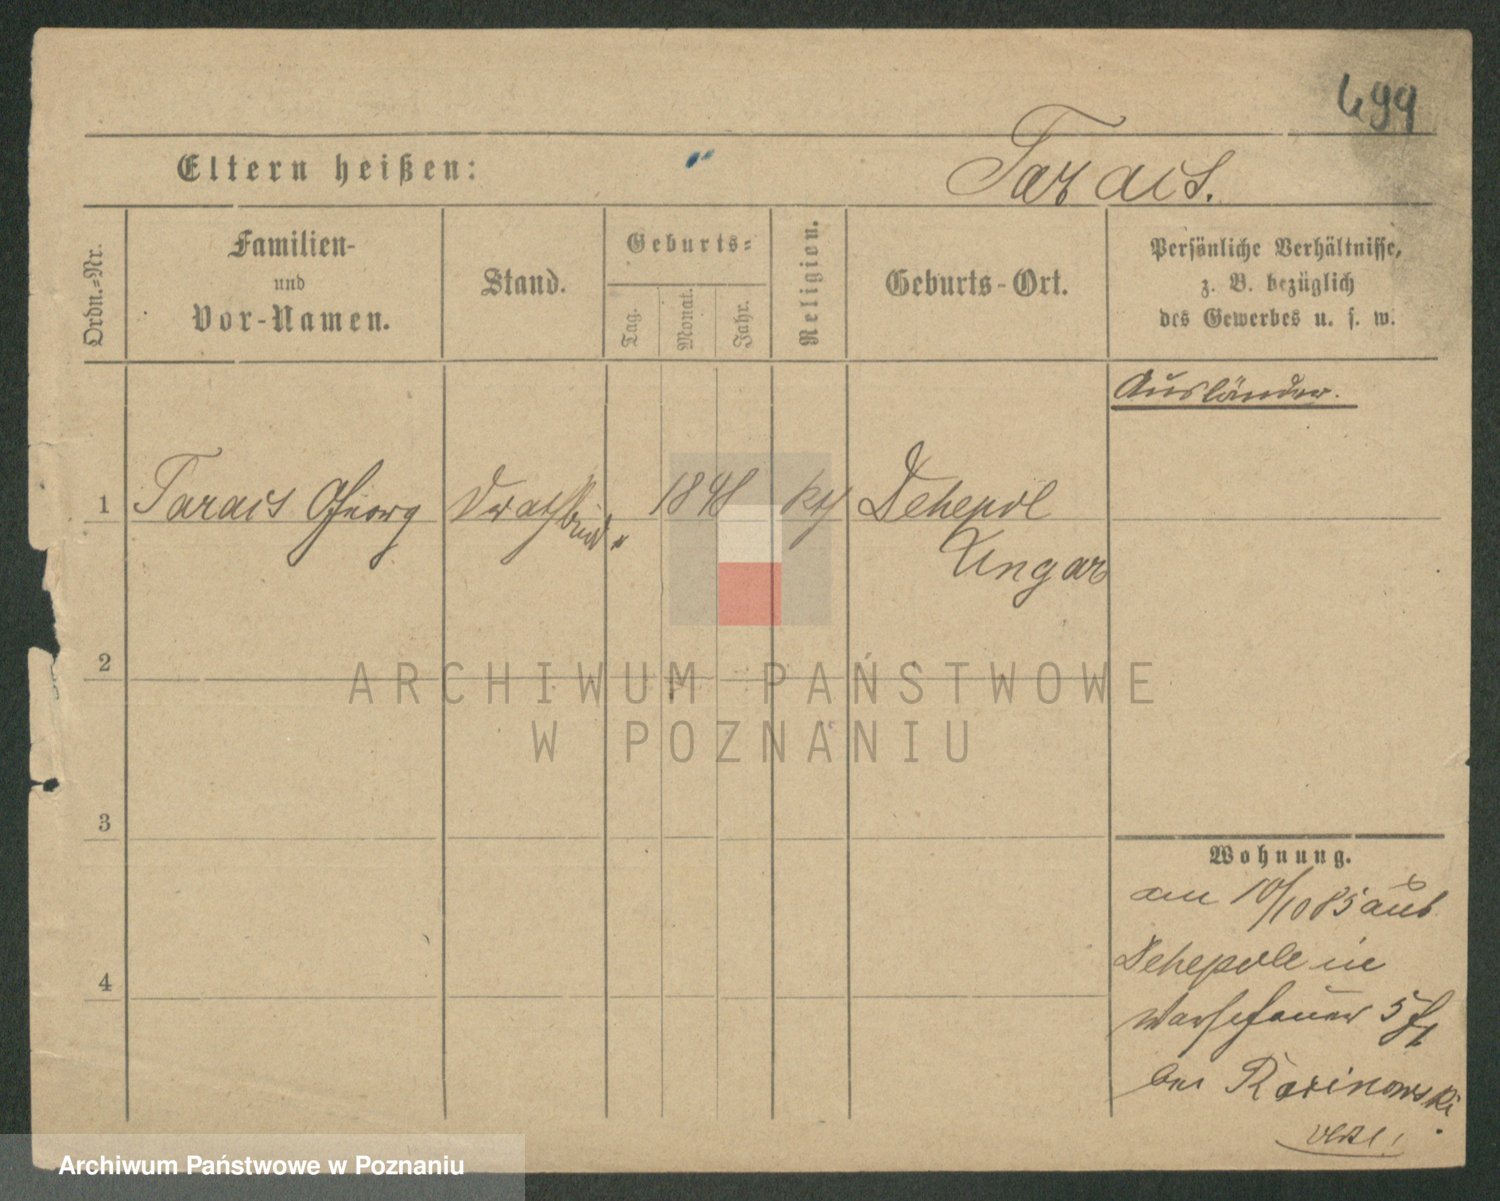 499
Eltern heißen:
Tarais.
Ordn.=Nr.
Familien-
und
Vor-Namen.
Stand.
Geburts=
Tag.
Monat.
Jahr.
Religion.
Geburts-Ort.
Persönliche Verhältnisse,
z. B. bezüglich
des Gewerbes u. s. w.
Ausländer.
1 Tarais Georg 1848 kth Dehepol
Ungar
2
3
4
Wohnung.
am 10/10 85 aus
Dehepole in
5
bei
ARCHIWUM PAŃSTWOWE
W POZNANIU
Archiwum Państwowe w Poznaniu